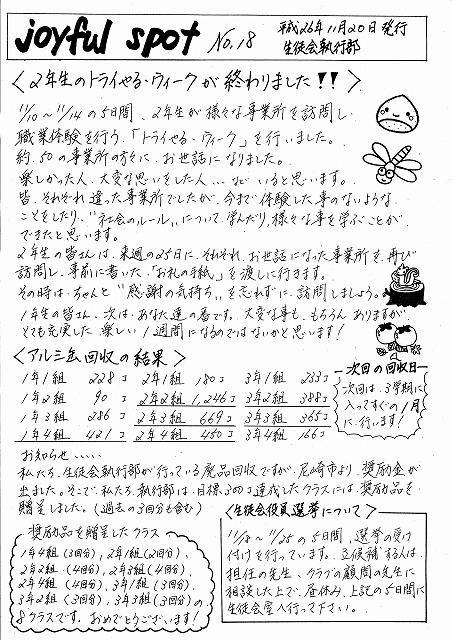 joyful spot No.18
平成26年11月20日発行
生徒会執行部
〈2年生のトライやる・ウィークが終わりました!!〉
11/10～11/14の5日間、2年生が様々な事業所を訪問し、
職業体験を行う、「トライやる・ウィーク」を行いました。
約50の事業所の方々に、お世話になりました。
楽しかった人、大変な思いをした人…など いると思います。
皆、それぞれ違った事業所でしたが、今まで体験した事のないような
ことをしたり、"社会のルール"について学んだり、様々な事を学ぶことが
できたと思います。
2年生の皆さんは、来週の25日に、それぞれ、お世話になった事業所を、再び
訪問し、事前に書いた、「お礼の手紙」を渡しに行きます。
その時は、ちゃんと"感謝の気持ち"を忘れずに、訪問しましょう。
1年生の皆さん、次は、あなた達の番です。大変な事も、もちろんありますが、
とても充実した、楽しい1週間になるのではないかと思います!
〈アルミ缶回収の結果〉
1年1組 228コ 2年1組 180コ 3年1組 233コ
1年2組 90コ 2年2組 1,246コ 3年2組 388コ
1年3組 286コ 2年3組 669コ 3年3組 365コ
1年4組 421コ 2年4組 450コ 3年4組 166コ
次回の回収日
次回は、3学期に
入ってすぐの1月
に行います!
お知らせ.....
私たち、生徒会執行部が行っている廃品回収ですが、尼崎市より、奨励金が
出ました。そこで、私たち、執行部は、目標、300コ達成したクラスには、奨励品を
贈呈しました。(過去の3回分も含む)
奨励品を贈呈したクラス
1年4組(3回分)、2年1組(2回分)、
2年2組(4回分)、2年3組(4回分)、
2年4組(4回分)、3年1組(3回分)、
3年2組(3回分)、3年3組(3回分)の、
8クラスです。おめでとうございます!
〈生徒会役員選挙について〉
11/18～11/25の5日間、選挙の受け
付けを行っています。立候補する人は、
担任の先生、クラブの顧問の先生に
相談した上で、昼休み、上記の5日間に
生徒会室へ行って下さい。